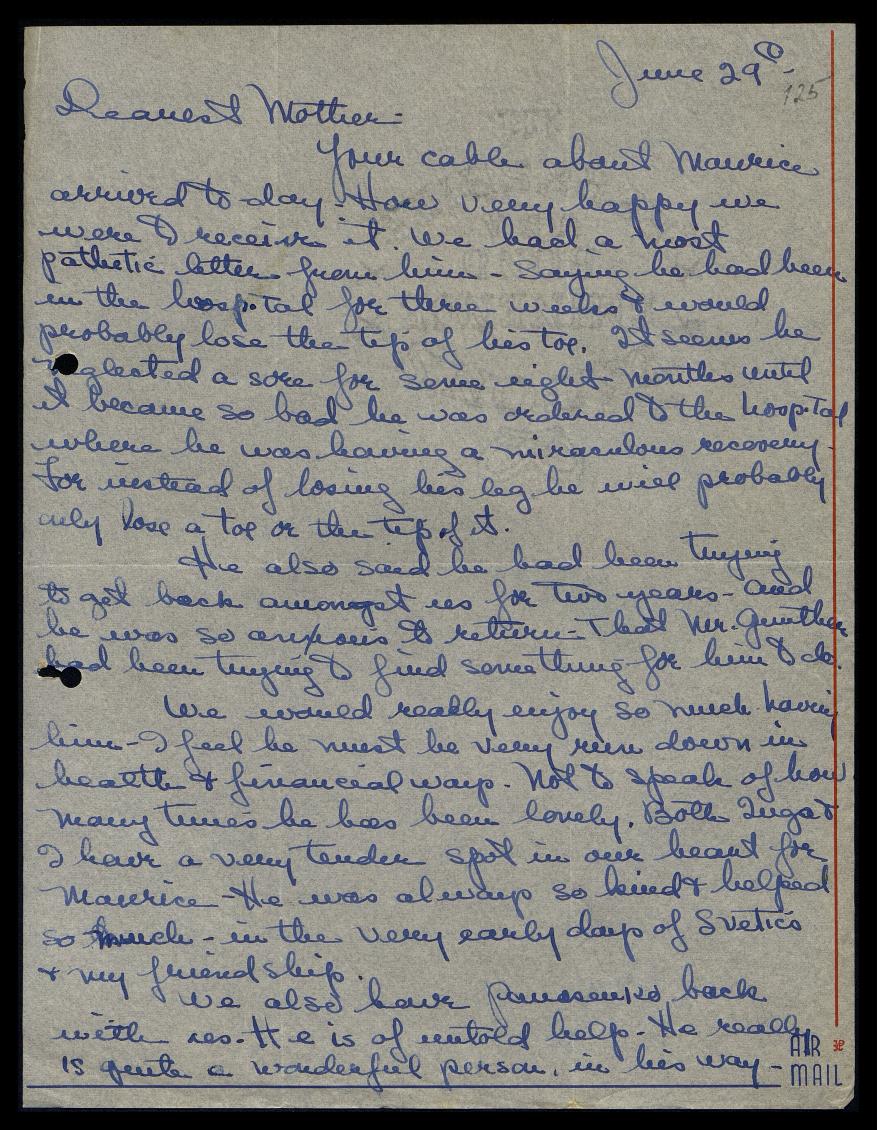 June 29th -
125
Dearest Mother -
Your cable about Maurice
arrived to-day. How very happy we
were to receive it. We had a most
pathetic letter from him - Saying he had been
in the hospital for three weeks & would
probably lose the tip of his toe. It seems he
neglected a sore for some eight months until
it became so bad he was ordered to the hospital
where he was having a miraculous recovery -
For instead of losing his leg he will probably
only lose a toe or the tip of it.
He also said he had been trying
to get back amongst us for two years - and
he was so anxious to return - That Mr. Gunther
had been trying to find something for him to do.
We would really enjoy so much having
him - I feel he must be very run down in
health & financial ways. Not to speak of how
many times he has been lonely. Both Inga &
I have a very tender spot in our heart for
Maurice - He was always so kind & helped
so much - in the very early days of Svetic's
& my friendship.
We also have Panasenko back
with us. He is of untold help. He really
is quite a wonderful person, in his way -
AIR
MAIL